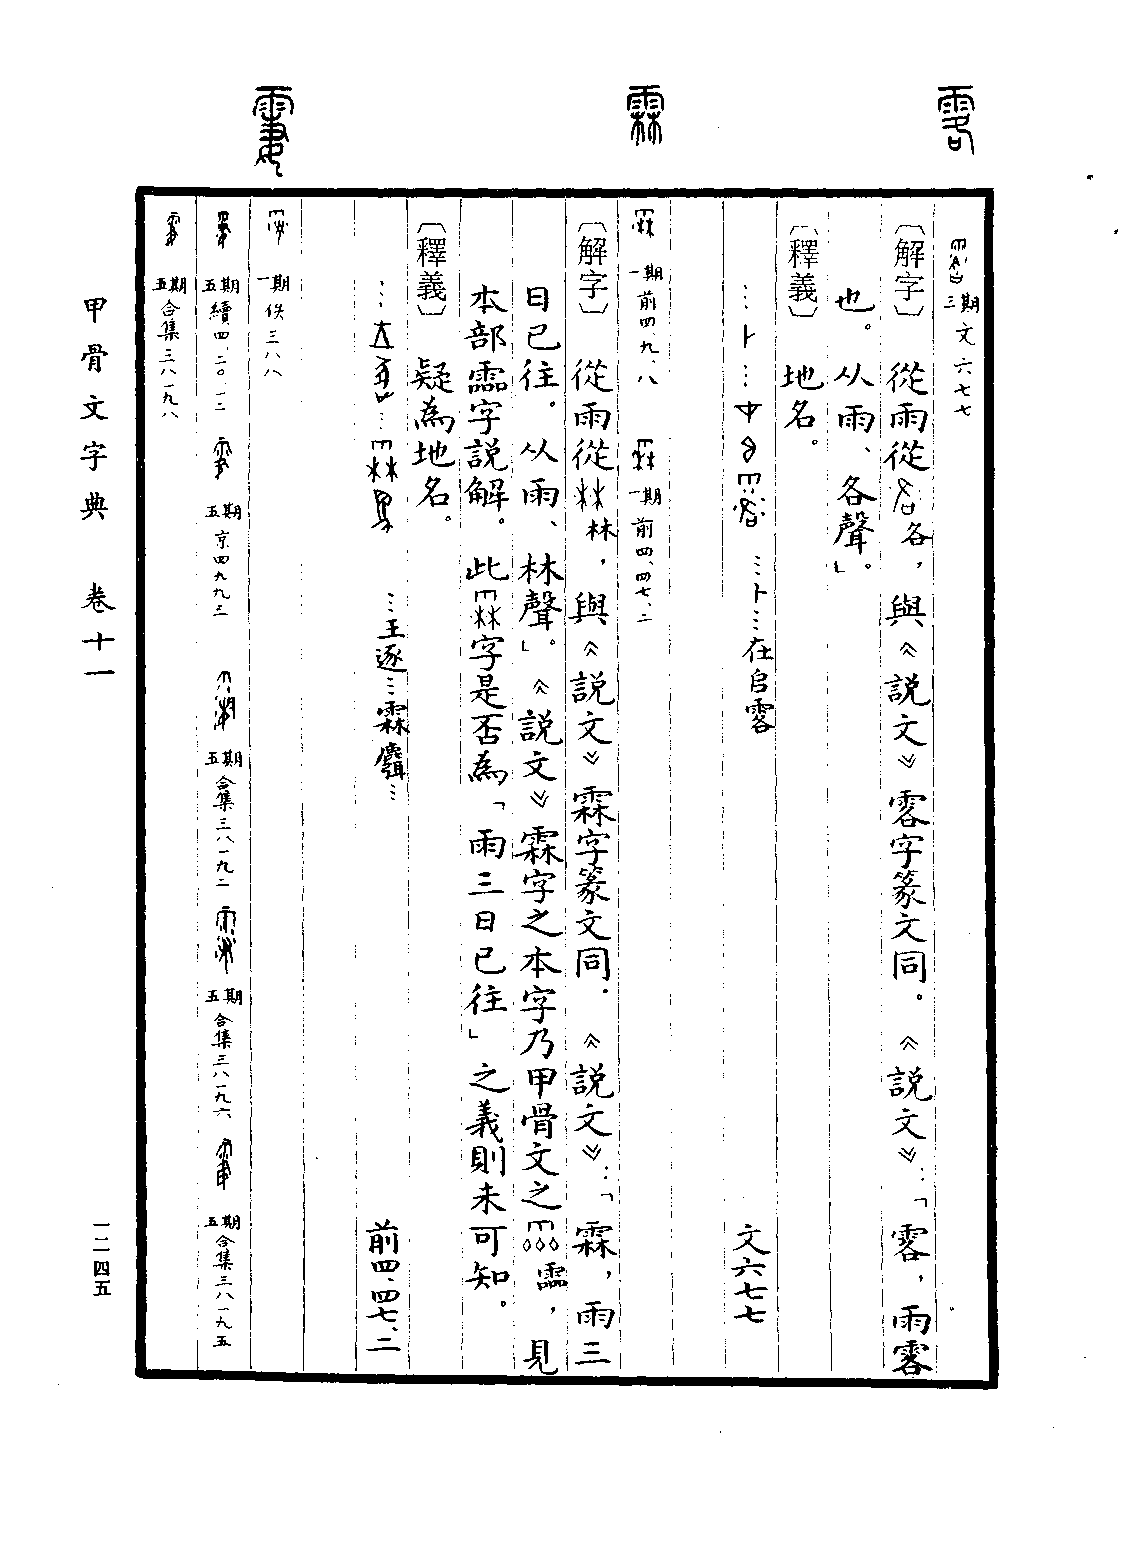 零
霖
三期 文六七七
〔解字〕 從雨從各,與《説文》零字篆文同。《説文》:「零,雨零
也。从雨、各聲」。
〔釋義〕 地名。
…卜…在𠂤零 文六七七
一期 前四、九、八 一期 前四、四七、二
〔解字〕 從雨從林,與《説文》霖字篆文同.《説文》:「霖,雨三
日已往。从雨、林聲」。《説文》霖字之本字乃甲骨文之霝,見
本部霝字説解。此字是否為「雨三日已往」之義則未可知。
〔釋義〕 疑為地名。
…王逐…霖麑… 前四、四七、二
一期 佚三八八
五期 續四、二〇、一二 五期 京四九九三 五期 合集三八一九二 五期 合集三八一九六 五期 合集三八一九五
五期 合集三八一九八
甲骨文字典 卷十一
一二四五